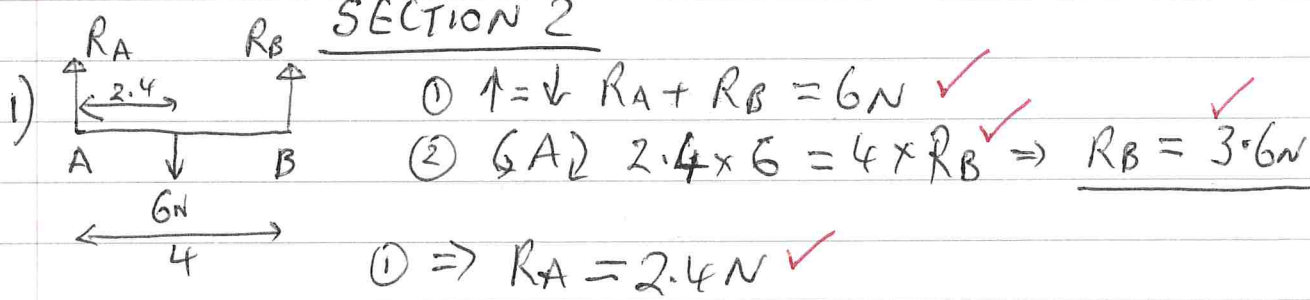 SECTION 2
1)
RA RB
2.4
A B
6N
4
① ↑=↓ RA + RB = 6N ✓
② ↺A↻ 2.4 × 6 = 4 × RB ✓ ⇒ RB = 3.6N ✓
① ⇒ RA = 2.4N ✓